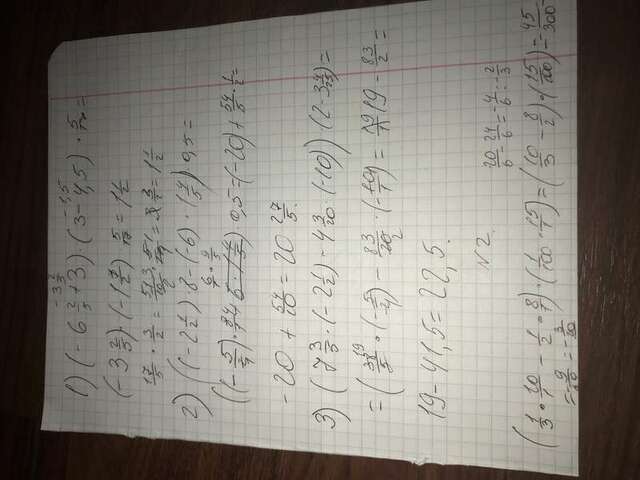 -3 2/5 -1,5
1) (-6 2/5 + 3) · (3 - 4,5) · 5/17 =
(-3 2/5) · (-1 1/2) 5/17 = 1 1/2
17/5 · 3/2 = 51/10 · 5/17 = 3/2 = 1 1/2
2) ((-2 1/2) · 8 - (-6) · 1 4/5) · 0,5 =
6/1 · 9/5
((-5/2) · 8/1 + 6 · 1 4/5) · 0,5 = (-20) + 54/5 · 1/2 =
-20 + 54/10 = 20 27/5.
3) (7 3/5 · (-2 1/2) - 4 3/20 · (-10)) (2 - 3 4/25) =
= (38/5 · (-5/2) - 83/20 · (-10/1) = 19 - 83/2 =
19 - 41,5 = 22,5.
N 2.
20/6 - 24/6 = -4/6 = -2/3
(1/3 · 10/1 - 1/2 · 8/1) · (1/100 · 15/1) = (10/3 - 8/2) · (15/100) = 45/300
= -9/60 = -3/20